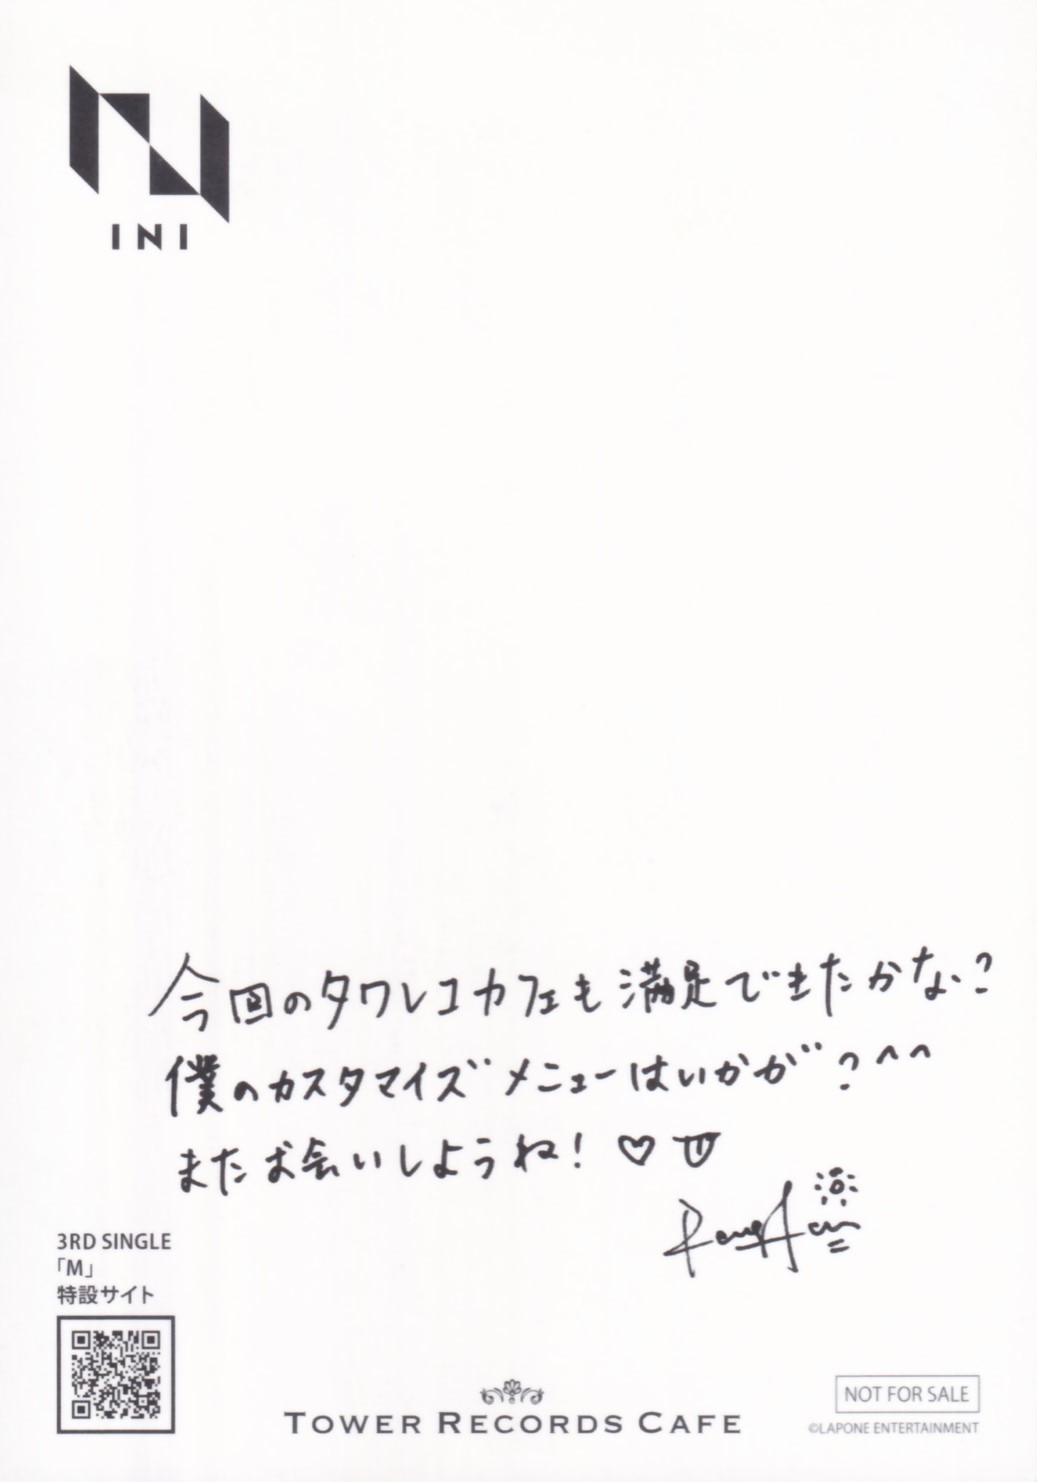 INI
今回のタワレコカフェも満足できたかな?
僕のカスタマイズメニューはいかが?^^
またお会いしようね! ♡
3RD SINGLE
「M」
特設サイト
TOWER RECORDS CAFE
NOT FOR SALE
©LAPONE ENTERTAINMENT